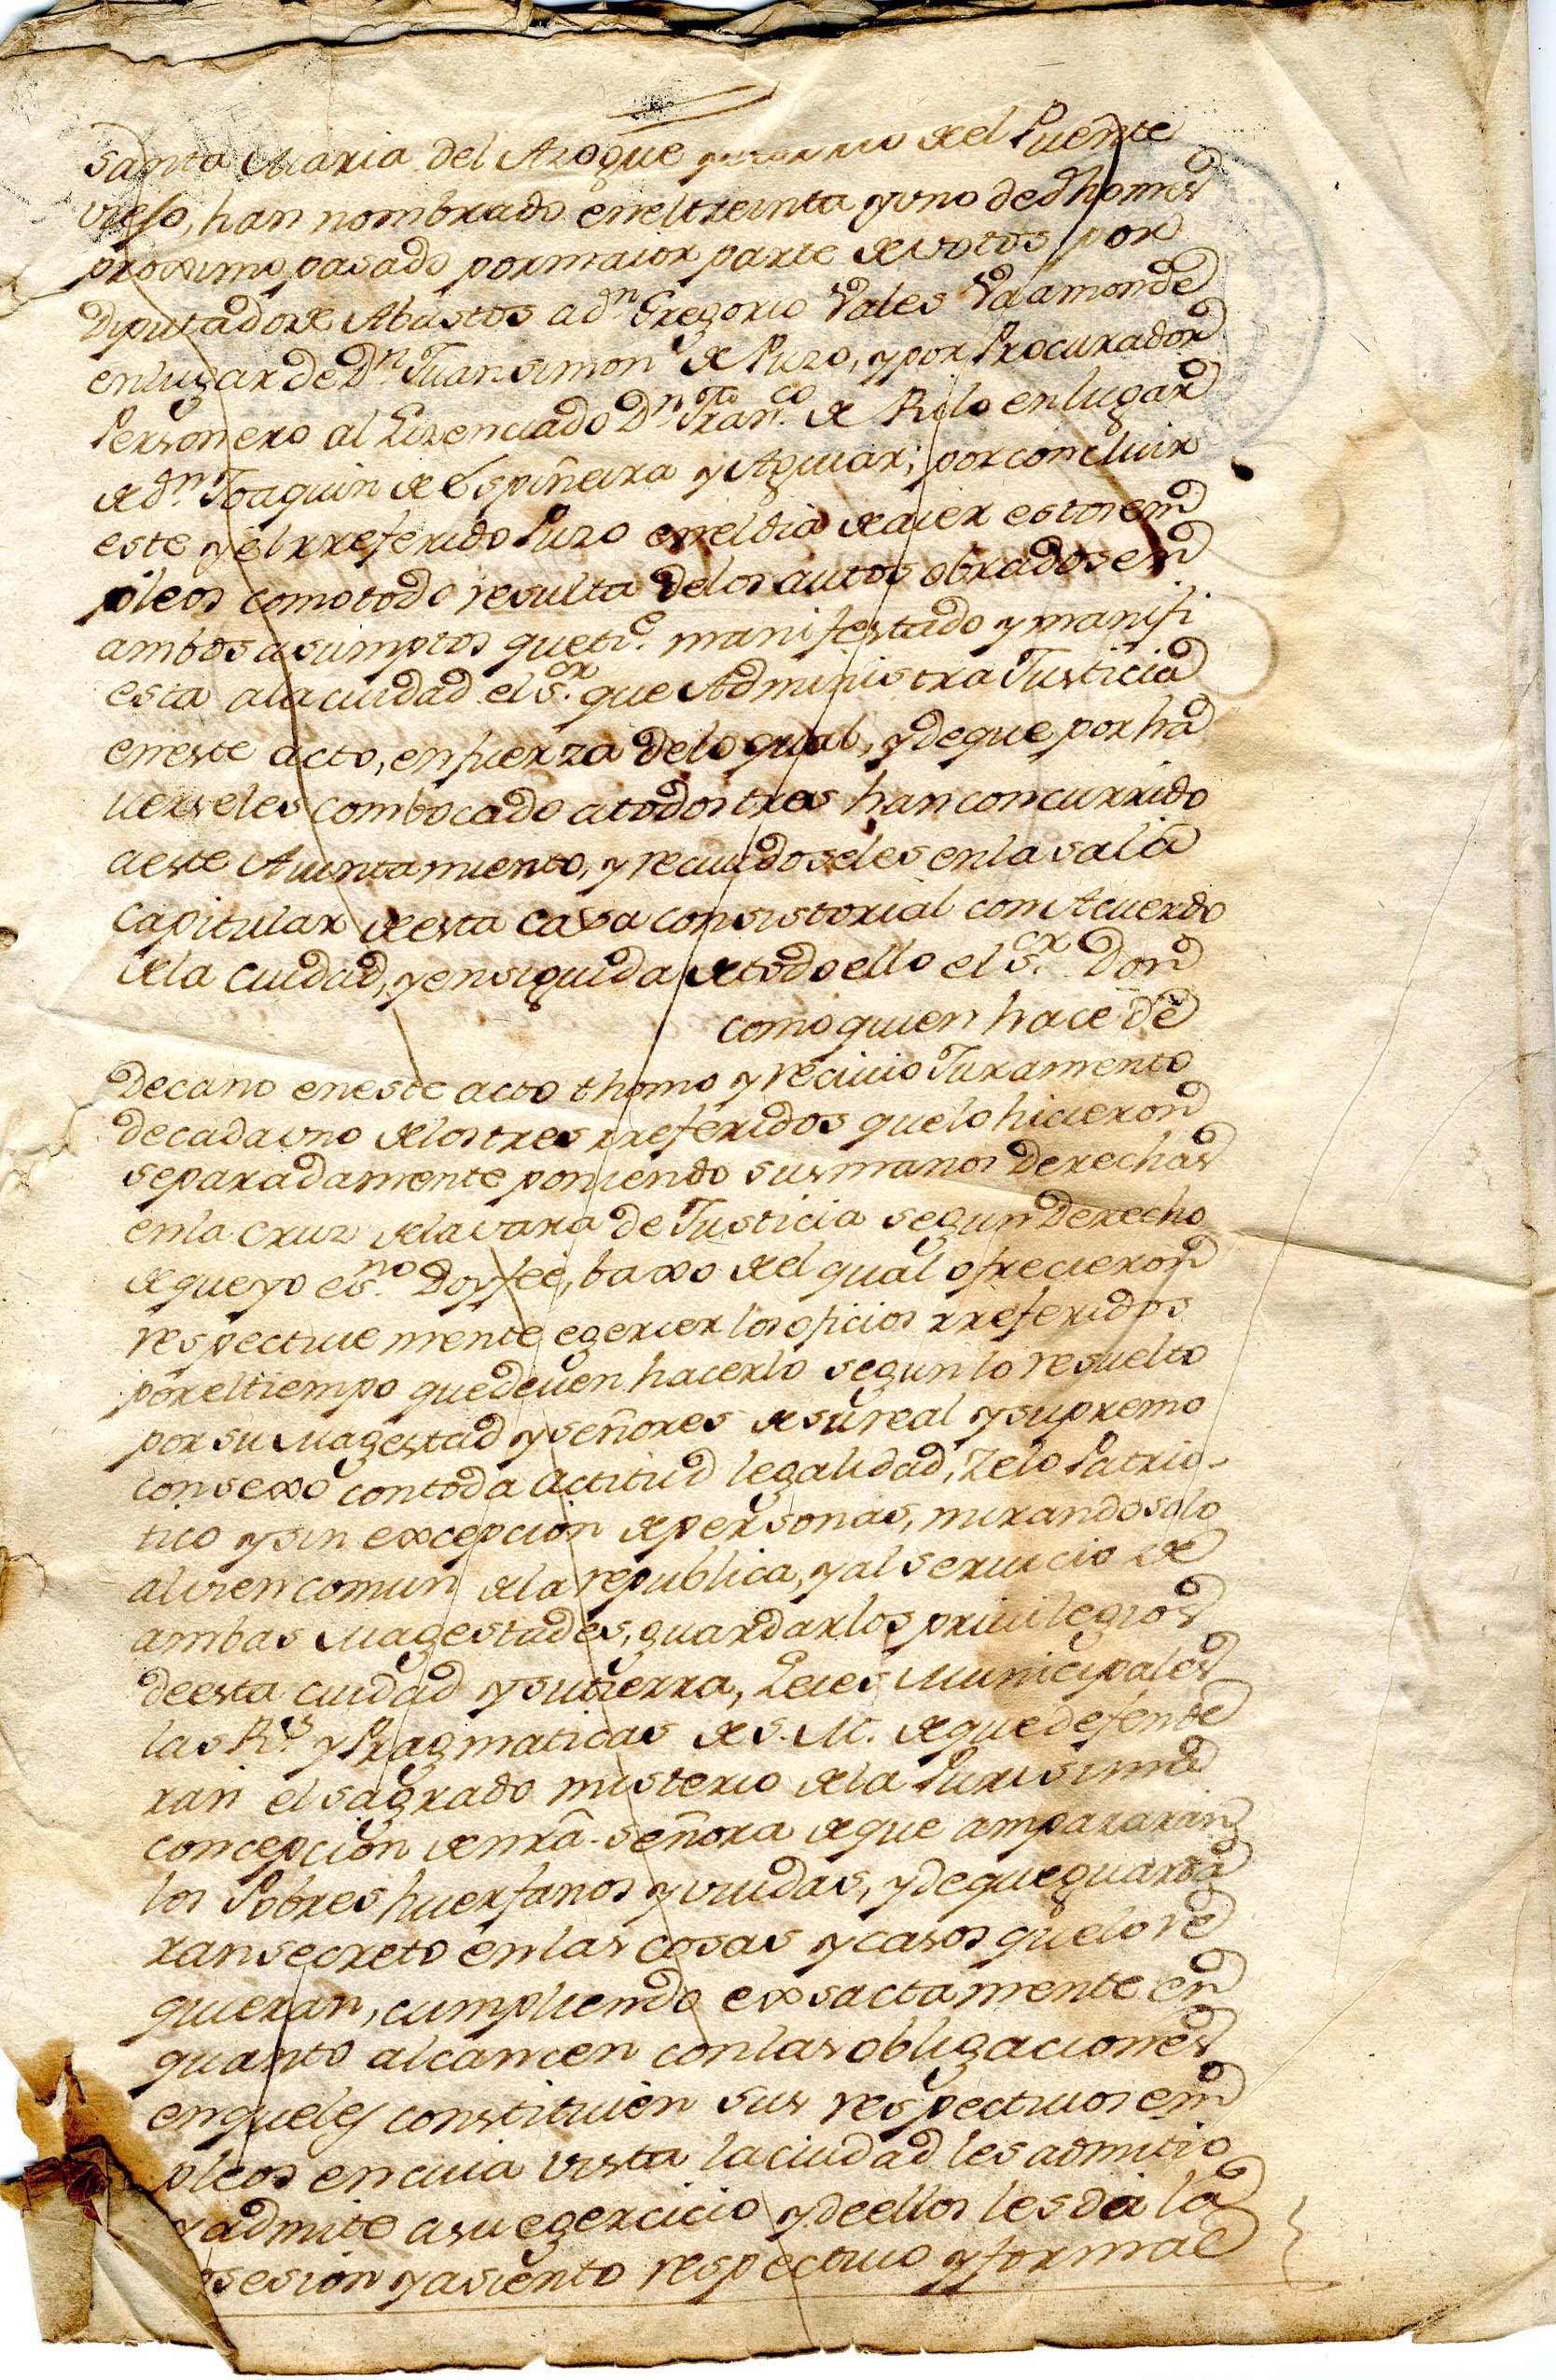 Santa Maria del Azogue y varrio del Puente
viejo, han nombrado enel treinta y uno de dho mes
proximo pasado por maior parte de votos por
Diputado de Abastos a dn Gregorio Vales Vaamonde
en lugar de Dn Juan simon de Puzo, y por Procurador
Personero al Lizenciado Dn Franco de Rilo en lugar
de dn Joaquin de Espiñeira y Aguiar; por concluir
este y el rreferido Puzo enel dia de aier estos em
pleos como todo resulta delos autos obrados en
ambos asumptos que tie manifestado y manifi
esta ala ciudad el Sor que Administra Justicia
eneste acto, en fuerza delo qual, y de que por ha
verseles combocado a todos tres han concurrido
a este Auintamiento, y recividoseles en la sala
Capitular de esta casa consistorial con Acuerdo
dela Ciudad, y enseguida de todo ello el Sor Don
como quien hace de
Decano eneste acto thomo y recivio Juramento
de cada uno delos tres rreferidos que lo hicieron
separadamente poniendo sus manos Derechas
en la Cruz dela vara de Justicia segun Derecho
de que yo esno Doy fee, baxo del qual ofrecieron
respectivemente egercer los oficios rreferidos
por el tiempo que deven hacerlo segun lo resuelto
por su Magestad y señores de su real y supremo
consexo con toda actitud legalidad, Zelo Patrio-
tico y sin excepcion de personas, mirando solo
al vien comun dela republica, y al servicio de
ambas Magestades, guardar los privilegios
de esta ciudad y su tierra, Leies Municipales
las Rs y Pragmaticas de S. M. de que defende
ran el sagrado misterio dela Purisima
concepcion de nrã Señora de que ampararan
los Pobres huerfanos y viudas, y de que guarda
ran secreto en las cosas y casos que lo re
quieran, cumpliendo exsactamente en
quanto alcancen con las obligaciones
en que les constituien sus respectivos em
pleos en cuia vista la ciudad les admitio
y admite a su egercicio y de ellos les da la
posesion y asiento respectivo y formal